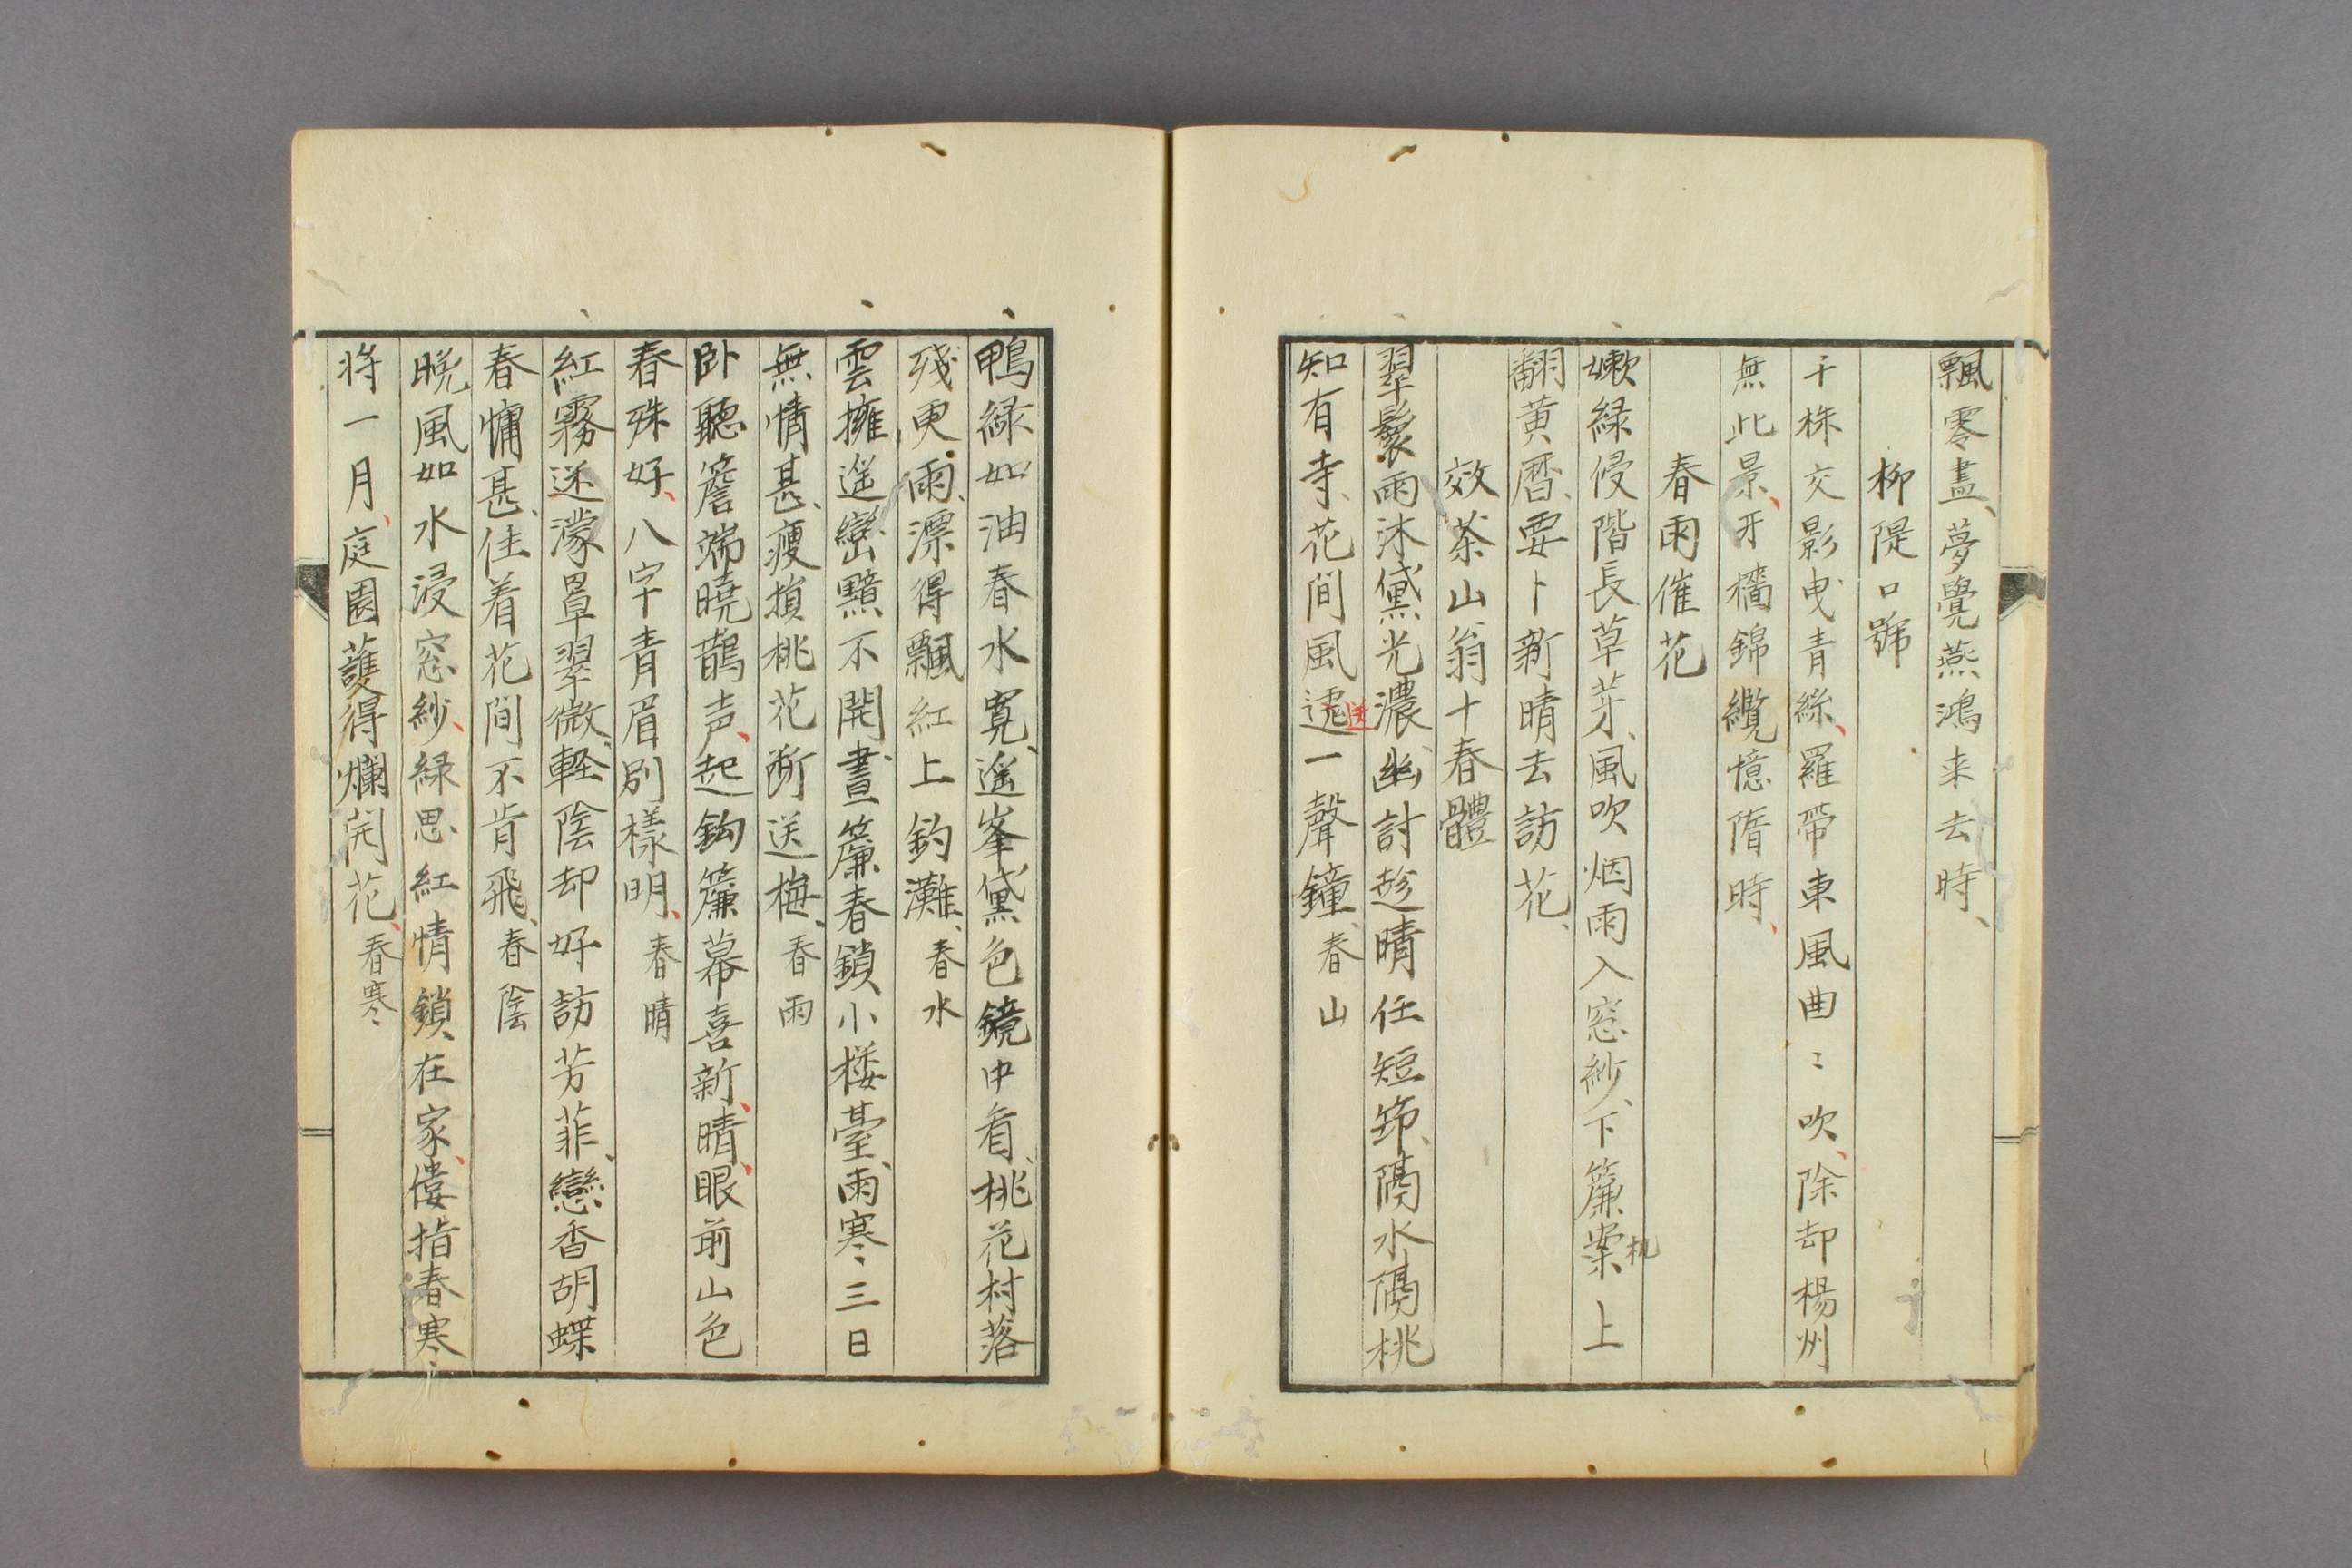 飄零盡、夢覺燕鴻来去時、
柳隄口號
千株交影曳青絲、羅帶東風曲〻吹、除却楊州
無此景、牙檣錦纜憶隋時、
春雨催花
嫩緑侵階長草芽、風吹烟雨入窓紗、下簾案上
机
翻黄暦、要卜新晴去訪花、
效茶山翁十春體
翠鬟雨沐黛光濃、幽討趁晴任短筇、隔水隔桃
知有寺、花間風遞一聲鐘、春山
送
鴨緑如油春水寛、遥峯黛色鏡中看、桃花村落
殘更雨、漂得飄紅上釣灘、春水
雲擁遥巒黯不開、晝簾春鎖小楼臺、雨寒三日
無情甚、瘦損桃花断送梅、春雨
卧聽簷端曉鵲声、起鈎簾幕喜新晴、眼前山色
春殊好、八字青眉别樣明、春晴
紅霧迷濛罩翠微、軽陰却好訪芳菲、戀香胡蝶
春慵甚、住着花間不肯飛、春陰
晩風如水浸窓紗、緑思紅情鎖在家、僂指春寒
将一月、庭園護得爛開花、春寒